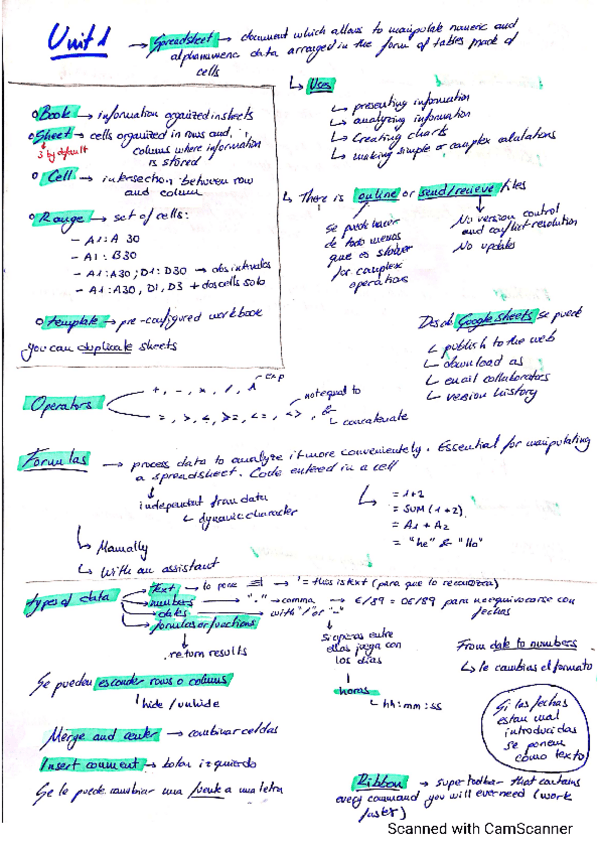 Unit 1 → Spreadsheet → document which allows to manipulate numeric and
alphanumeric data arranged in the form of tables made of
cells
o Book → information organized in sheets
o Sheet → cells organized in rows and
3 by default
columns where information
is stored
o Cell → intersection between row
and column
o Range → set of cells:
- A1:A30
- A1:B30
- A1:A30; D1:D30 → dos intervalos
- A1:A30, D1, D3 + dos cells solo
o template → pre-configured workbook
you can duplicate sheets
↳ Uses
↳ presenting information
↳ analyzing information
↳ Creating charts
↳ making simple or complex calculations
↳ There is online or send/recieve files
Se puede hacer
de todo menos
que es slower
for complex
operations
No version control
and conflict-resolution
No updates
Desde Google sheets se puede
↳ publish to the web
↳ download as
↳ email collaborators
↳ version history
Operators
+, -, ×, /, ^ exp
=, >, <, >=, <=, <>, &
not equal to
concatenate
Formulas → process data to analyze it more conveniently. Essential for manipulating
a spreadsheet. Code entered in a cell
independent from data
↳ dynamic character
↳ Manually
↳ With an assistant
↳ = 1+2
= SUM (1+2)
= A1 + A2
= "he" & "llo"
types of data
text → to rece → ' = this is text (para que lo reconozca)
numbers → "." → comma → €/89 = 0€/89 para no equivocarse con
fechas
dates → with "/" or "-"
formulas or functions
return results
si operas entre
ellas juega con
los días
horas
↳ hh:mm:ss
From date to numbers
↳ le cambias el formato
Si las fechas
estan mal
introducidas
se ponen
como texto
Se pueden esconder rows o columns
hide / unhide
Merge and center → combinar celdas
Insert comment → boton izquierdo
Se le puede cambiar una funk a una letra
Ribbon → super toolbar that contains
every command you will ever need (work
faster)
Scanned with CamScanner